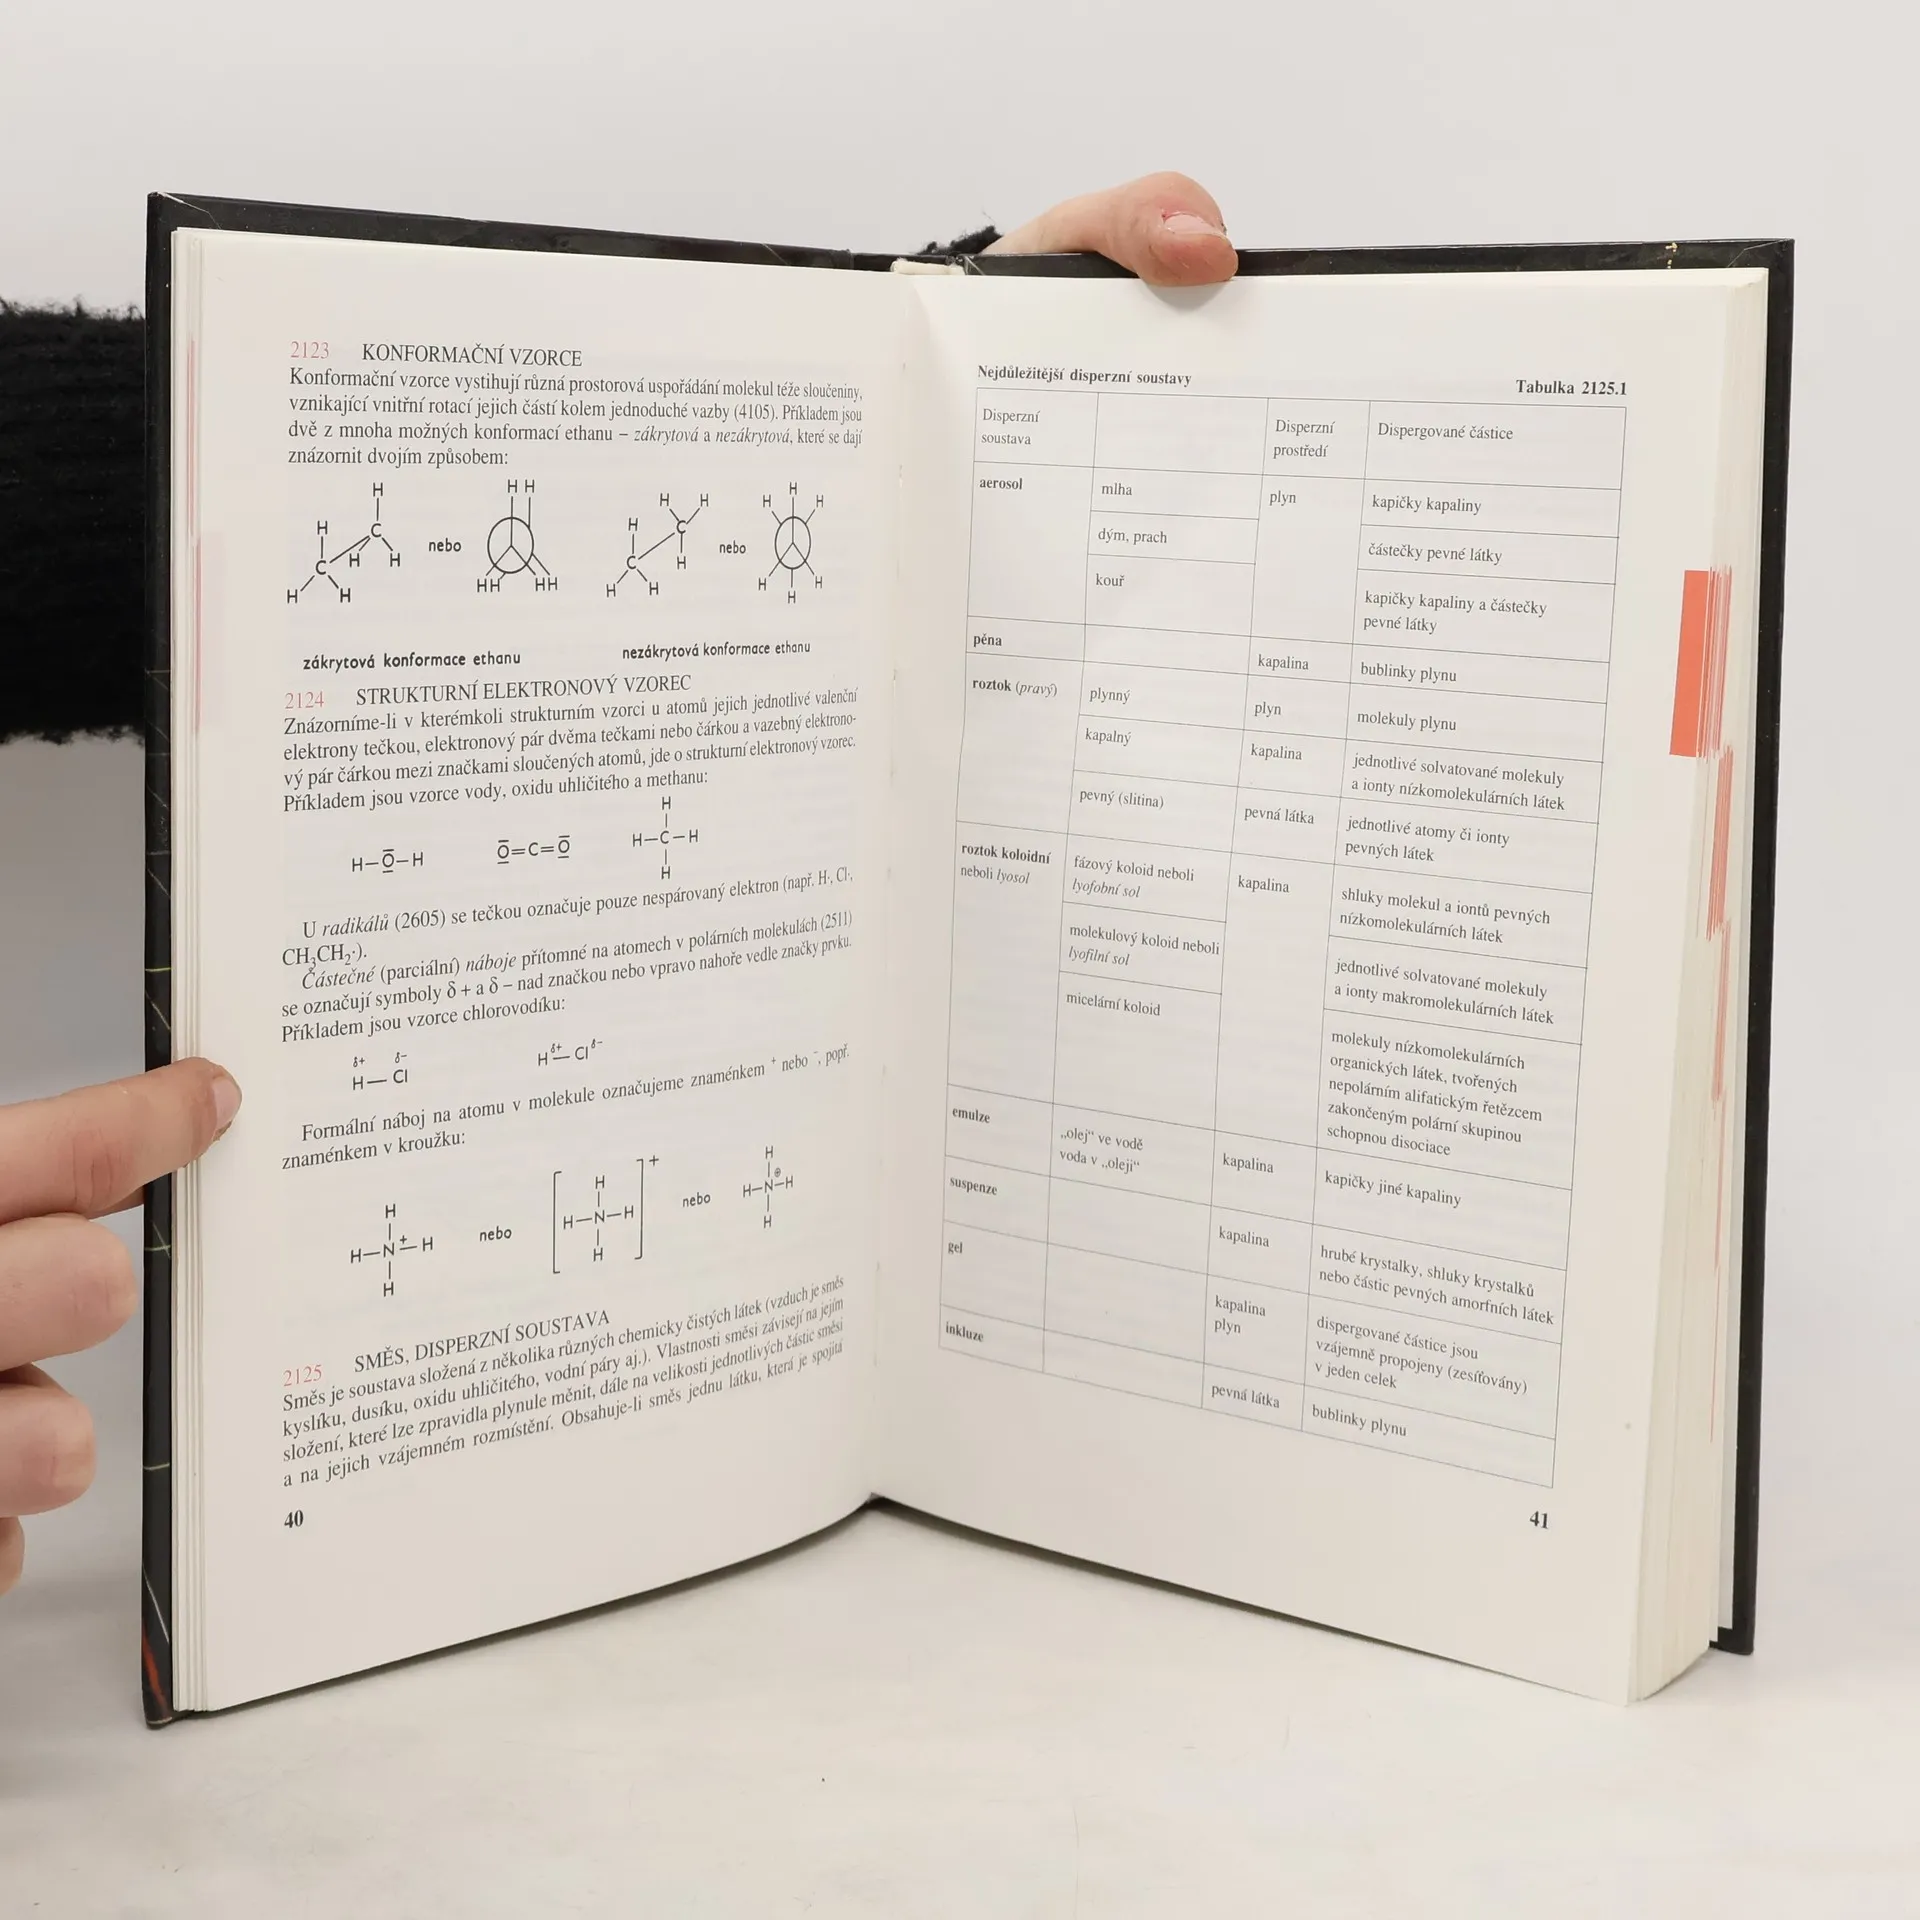 2123 KONFORMAČNÍ VZORCE
Konformační vzorce vystihují různá prostorová uspořádání molekul téže sloučeniny,
vznikající vnitřní rotací jejich částí kolem jednoduché vazby (4105). Příkladem jsou
dvě z mnoha možných konformací ethanu – zákrytová a nezákrytová, které se dají
znázornit dvojím způsobem:
H H H H H H H
H H
C C nebo C C nebo
H H
H H H H H H H H H H H H H
H
zákrytová konformace ethanu nezákrytová konformace ethanu
2124 STRUKTURNÍ ELEKTRONOVÝ VZOREC
Znázorníme-li v kterémkoli strukturním vzorci u atomů jejich jednotlivé valenční
elektrony tečkou, elektronový pár dvěma tečkami nebo čárkou a vazebný elektrono-
vý pár čárkou mezi značkami sloučených atomů, jde o strukturní elektronový vzorec.
Příkladem jsou vzorce vody, oxidu uhličitého a methanu:
H
H–O–H O=C=O H–C–H
H
U radikálů (2605) se tečkou označuje pouze nespárovaný elektron (např. H·, Cl·,
CH₃CH₂·).
Částečné (parciální) náboje přítomné na atomech v polárních molekulách (2511)
se označují symboly δ + a δ – nad značkou nebo vpravo nahoře vedle značky prvku.
Příkladem jsou vzorce chlorovodíku:
δ+ δ–
H — Cl Hδ+ — Clδ–
Formální náboj na atomu v molekule označujeme znaménkem ⁺ nebo ⁻, popř.
znaménkem v kroužku:
H H H
H–N⁺–H nebo [H–N–H]⁺ nebo H–N⊕–H
H H H
2125 SMĚS, DISPERZNÍ SOUSTAVA
Směs je soustava složená z několika různých chemicky čistých látek (vzduch je směs
kyslíku, dusíku, oxidu uhličitého, vodní páry aj.). Vlastnosti směsi závisejí na jejím
složení, které lze zpravidla plynule měnit, dále na velikosti jednotlivých částic směsi
a na jejich vzájemném rozmístění. Obsahuje-li směs jednu látku, která je spojitá
40
Nejdůležitější disperzní soustavy Tabulka 2125.1
Disperzní
soustava
Disperzní
prostředí
Dispergované částice
aerosol mlha plyn kapičky kapaliny
dým, prach částečky pevné látky
kouř kapičky kapaliny a částečky
pevné látky
pěna kapalina bublinky plynu
roztok (pravý) plynný plyn molekuly plynu
kapalný kapalina jednotlivé solvatované molekuly
a ionty nízkomolekulárních látek
pevný (slitina) pevná látka jednotlivé atomy či ionty
pevných látek
roztok koloidní
neboli lyosol
fázový koloid neboli
lyofobní sol
kapalina
shluky molekul a iontů pevných
nízkomolekulárních látek
molekulový koloid neboli
lyofilní sol
jednotlivé solvatované molekuly
a ionty makromolekulárních látek
micelární koloid
molekuly nízkomolekulárních
organických látek, tvořených
nepolárním alifatickým řetězcem
zakončeným polární skupinou
schopnou disociace
emulze
„olej“ ve vodě
voda v „oleji“
kapalina kapičky jiné kapaliny
suspenze kapalina hrubé krystalky, shluky krystalků
nebo částic pevných amorfních látek
gel
kapalina
plyn
dispergované částice jsou
vzájemně propojeny (zesíťovány)
v jeden celek
inkluze pevná látka bublinky plynu
41